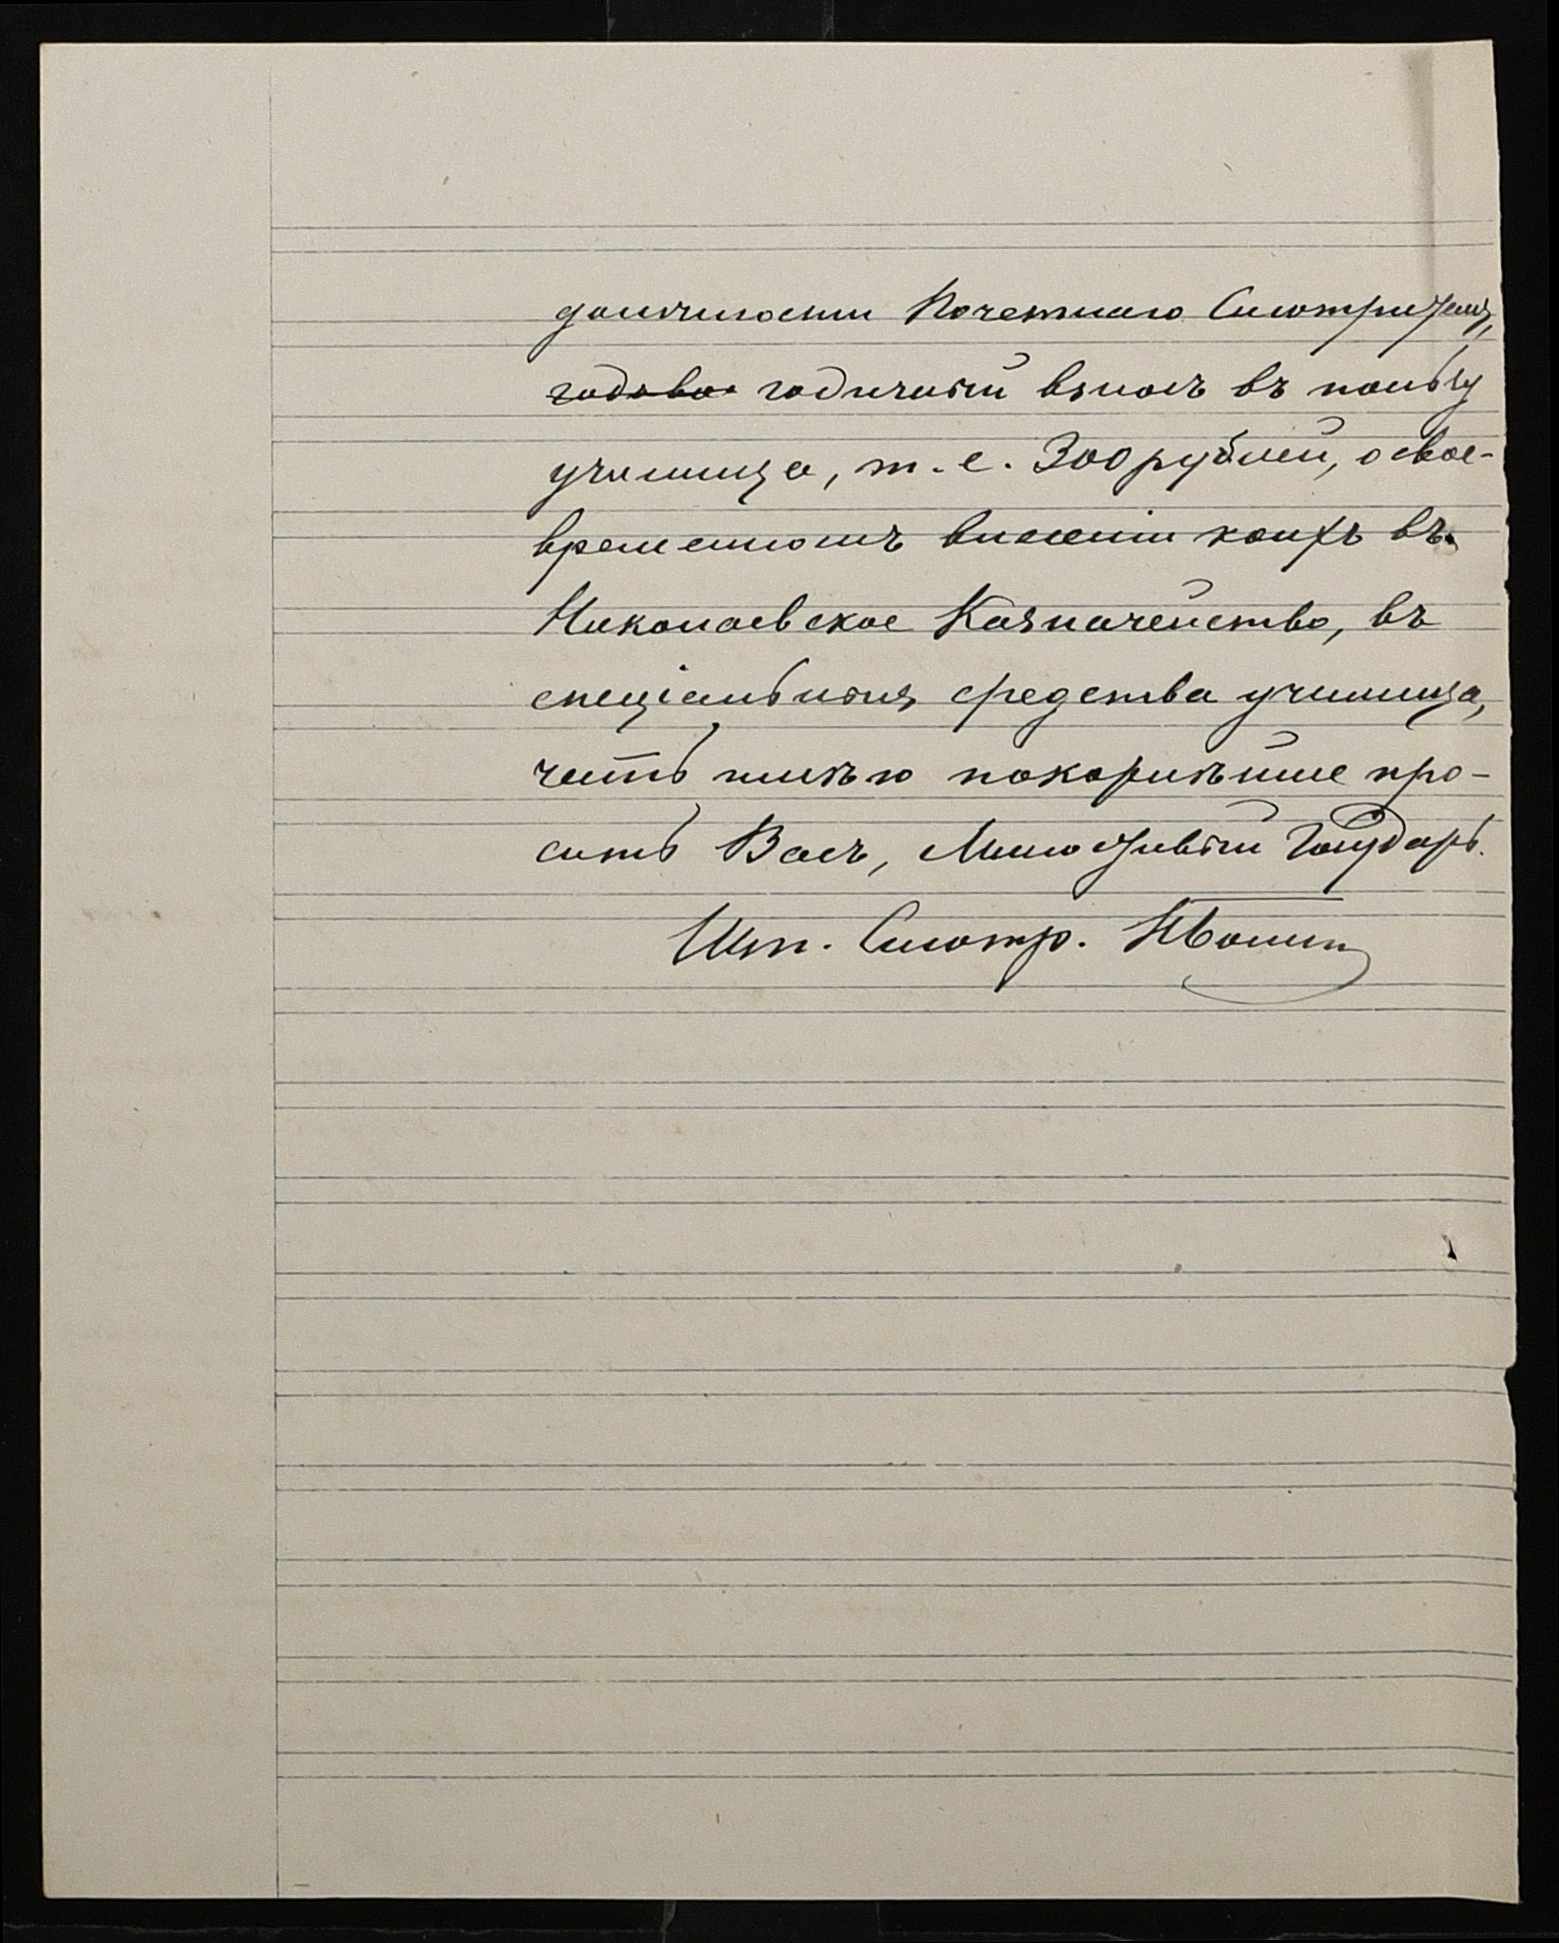 должности Почетнаго Смотрителя,
годово годичный взносъ въ пользу
училища, т. е. 300 рублей, о свое-
временномъ внесеніи коихъ въ
Николаевское Казначейство, въ
спеціальныя средства училища,
честь имѣю покорнѣйше про-
сить Васъ, Милостивый Государь.
Шт. Смотр.